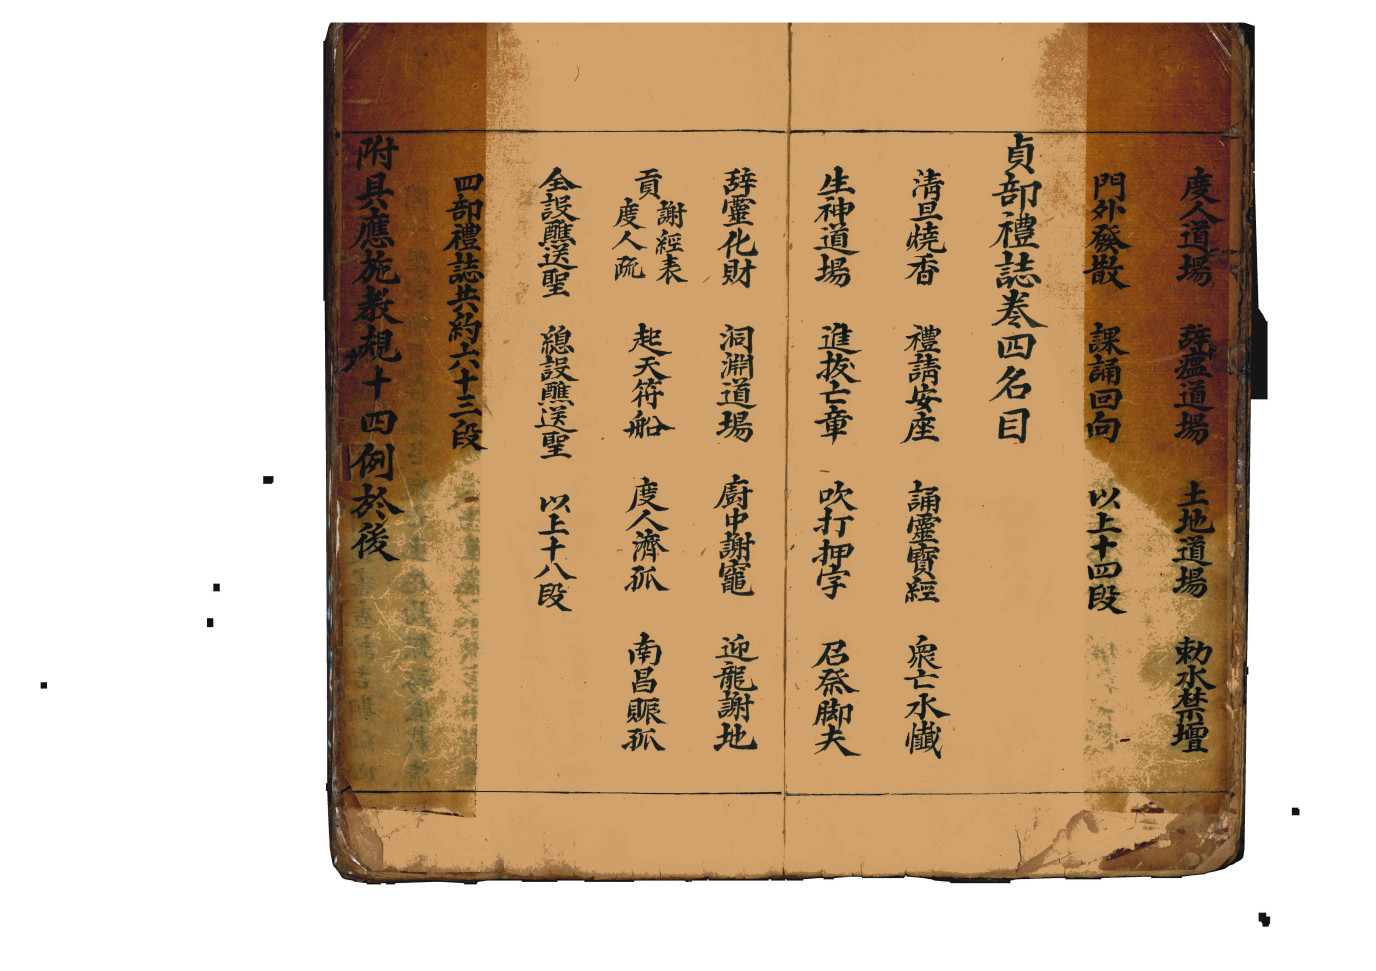 度人道場　辞瘟道場　土地道場　勅水禁壇
門外發散　課誦回向　以上十四段
貞部禮誌卷四名目
清旦燒香　禮請安座　誦靈寶經　衆亡水懺
生神道場　進拔亡章　吹打押字　召祭脚夫
辞靈化財　洞淵道場　廚中謝竈　迎龍謝地
貢謝經表度人疏　起天符船　度人濟孤　南昌賑孤
全設醮送聖　總設醮送聖　以上十八段
四部禮誌共約六十三段
附具應施教規十四例於後